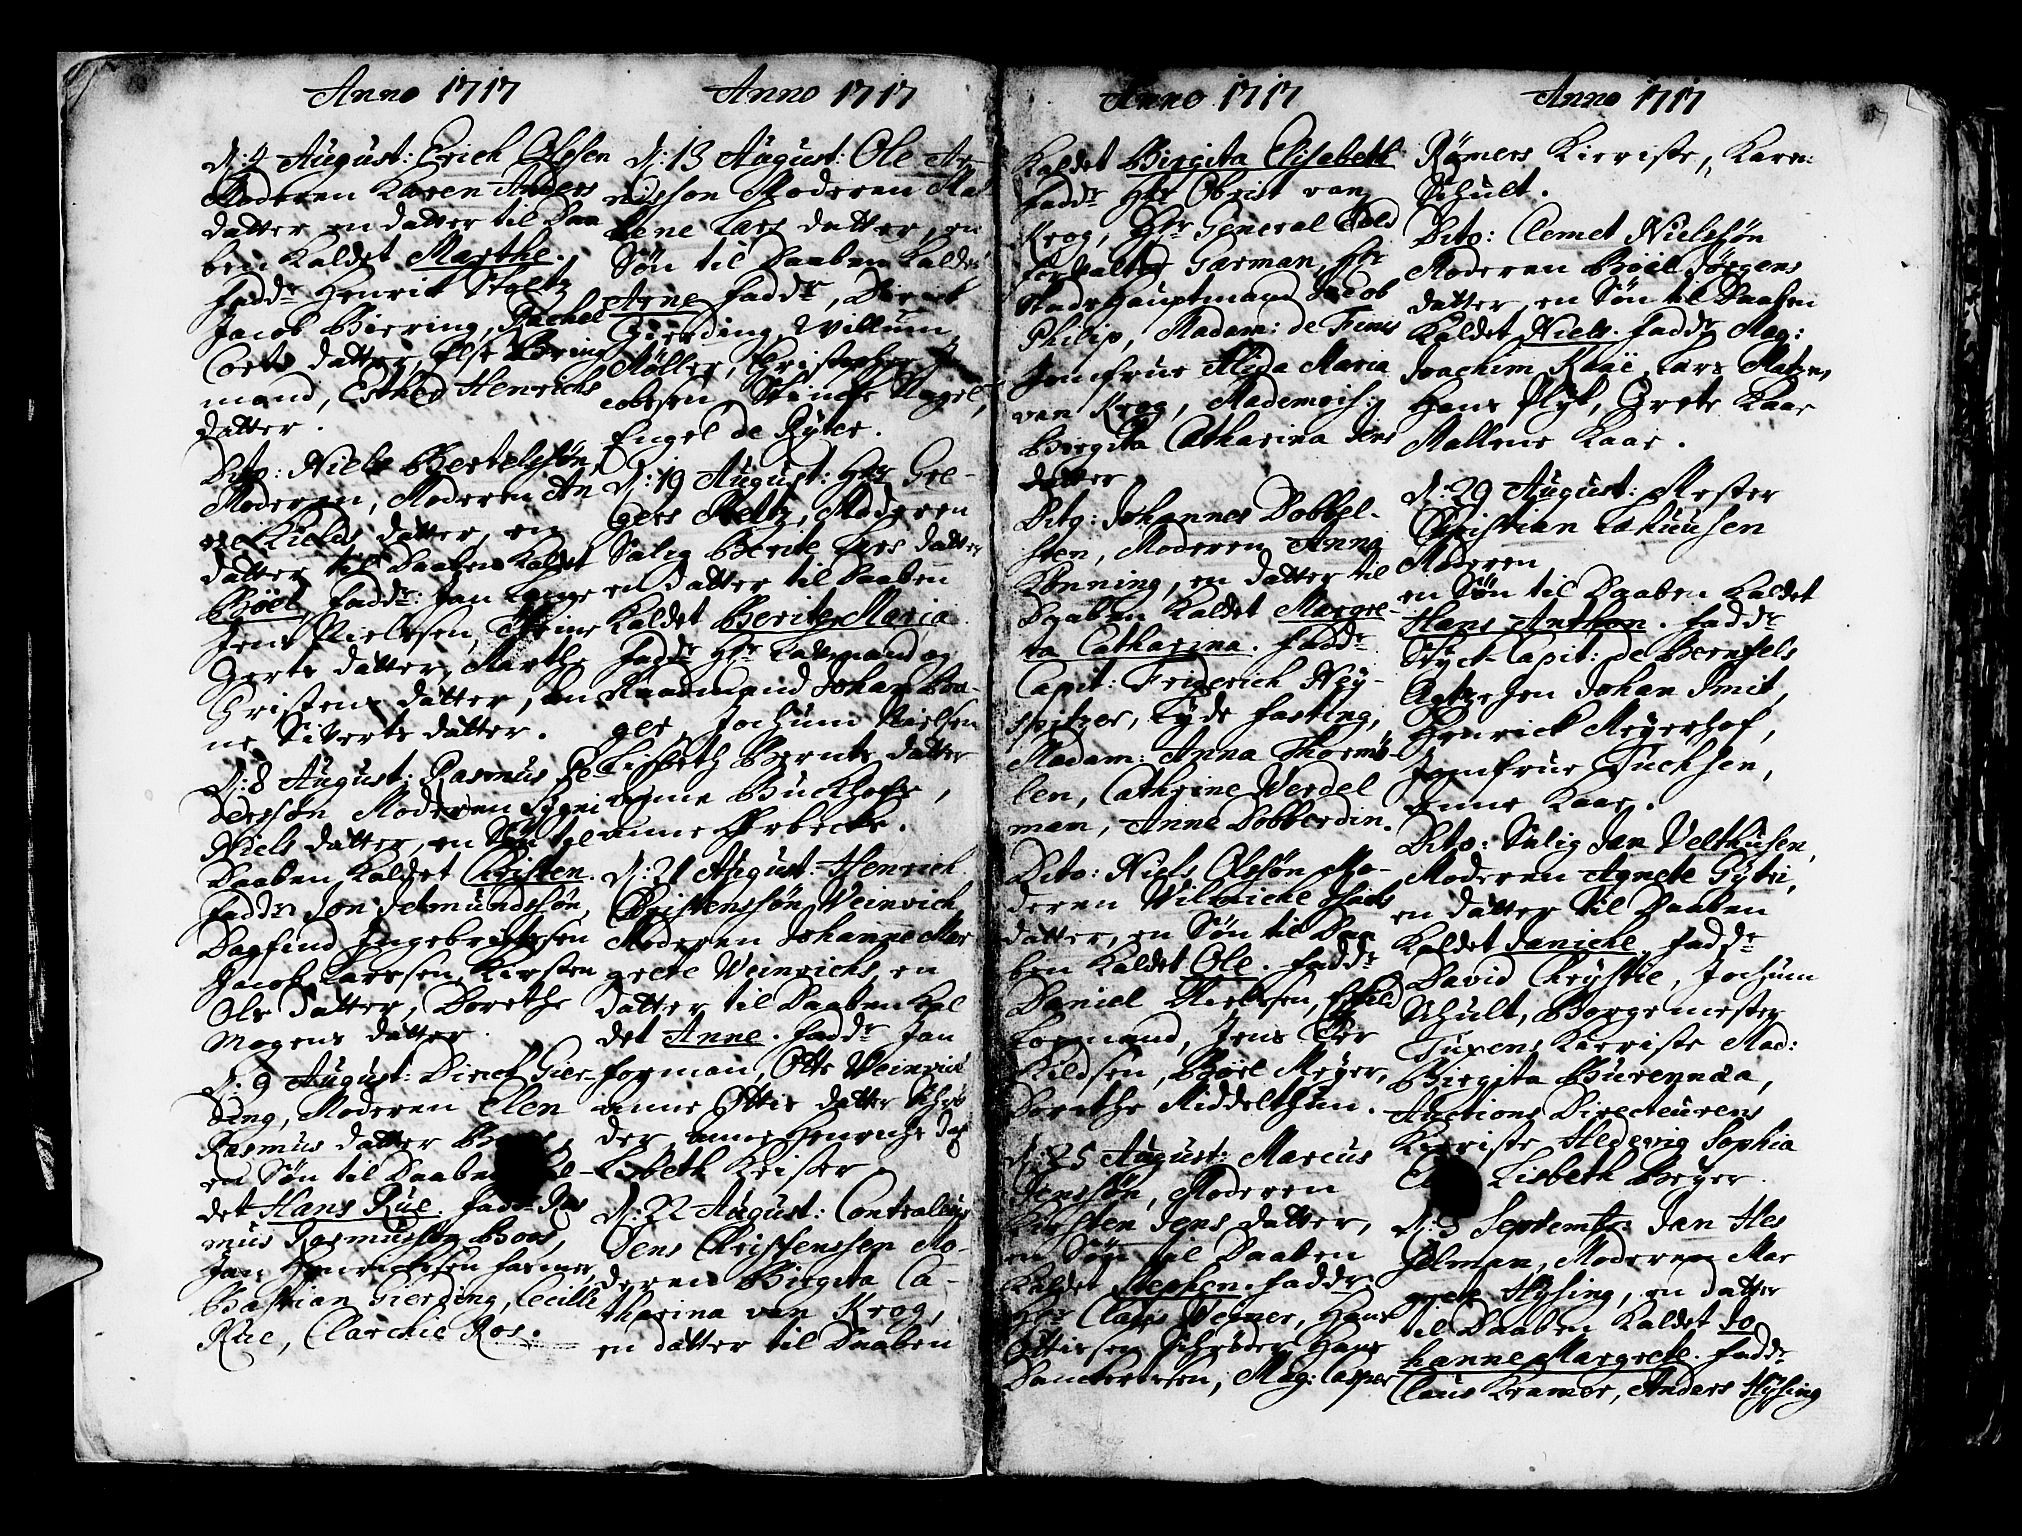 Anno 1717
d: 4 August: Erich Olssen
Moderen Karen Anders
datter en datter til Daa
ben Kaldet Marthe.
Fadd: Henrik Stoltz
Jacob Biering, Rachel
Corts datter, Else Bring
mand, Esther Henrichs
datter.
Dito: Niels Bertelssøn,
Moderen, Moderen An
ne Kields datter, en
datter til Daaben Kaldet
Bøel, Fadd: Jan Lange
Jens Nielssen, Trine
Gerts datter, Marthe
Christens datter, An
ne Siverts datter.
d: 8 August: Rasmus Pe
derssøn Moderen Signi
Niels datter, en Søn til
Daaben Kaldet Christen.
Fadd: Jon Jetmundssøn,
Dagfind Ingebrigtssen
Jacob Larssen, Kirsten
Ols datter, Dorethe
Mogens datter.
d: 9 August: Dirich Gier-
ding, Moderen Elen
Rasmus datter
en Søn til Daaben
det Hans Rue. Fadd: Ras
mus Rasmussen Boes,
Jan Henrichsen Farmer,
Bastian Gierding, Cecille
Rue, Clarchie Ros.
Anno 1717
d: 13 August: Ole Ar-
nesson Moderen Ma
lene Lars datter, en
Søn til Daaben Kaldet
Arne Fadd:, Dirich
Gierding, Willum
Møller, Christopher Ja
cobssen, Stinche Nagel,
Engel de Ryter.
d: 19 August: Hr Gre-
gers Meltz, Moderen
Salig Berite Lars datter
en datter til Daaben
Kaldet Berite Maria
Fadd: Hr Latmand og
Raadmand Johan Bra-
ger, Jochum Nielsen
Lisbeth Bernts datter
anne Buckholt,
anne Orbecke.
d: 21 August: Henrich
Christenssøn Weinrich
Moderen Johanne Mar
grete Weinrichs, en
datter til Daaben Kal
det Anne. Fadd: Jan
Forman, Otte Weinrich
anne Ottis datter Schrö
der, anne Henrichs dat
Lisbeth Krister
d: 22 August: Controlleur
Jens Christenssen Mo-
deren Birgita Ca-
tharina van Krog,
en datter til Daaben
Anno 1717
Kaldet Birgita Elisabeth
Fadd: Hr Obrist van
Krog, Hr General Told
forvalter Garman, Hr
Stadshauptmand Jacob
Philip, Madam: de Fines
Jomfrue Alida Maria
van Krog, Mademois:
Birgita Catharina Jens
datter.
Dito: Johannes Dobbel-
sten, Moderen Anna
Konning, en datter til
Daaben Kaldet Margre-
ta Catharina. Fadd:
Capit: Friderich Ney-
spitzer, Tyde Fasting,
Madam: Anna Thormø-
len, Cathrine Werdel
man, Anne Dobberdin.
Dito: Niels Olssøn Mo-
deren Wilmiche Mads
datter, en Søn til Daa
ben Kaldet Ole. Fadd:
Daniel Nielssen, Eskild
Formand, Jens Ter
Kildsen, Bøel Meyer,
Dorethe Middelthun.
d: 25 August: Marcus
Jenssøn, Moderen
Kirsten Jens datter,
en Søn til Daaben
Kaldet Stephen. Fadd:
Hr Claus Werner, Hans
Ottissen Schrøder, Hans
Danckertsen, Mag: Casper
Anno 1717
Rømers Kieriste, Karen
Schult.
Dito: Clemet Nielssøn
Moderen Bøel Jørgens
datter, en Søn til Daaben
Kaldet Niels. Fadd: Mag:
Joachim Kaae, Lars Matzen,
Hans Plyt, Grete Kaae
Mallene Kaae.
d: 29 August: Mester
Christian Lahuusen
Moderen
en Søn til Daaben Kaldet
Hans Anthon. Fadd:
Styct-Capit: de Bernfels
Johan Smit,
Henrick Meyerhof,
Jomfrue Tuchsen,
anne Kaae.
Dito: Salig Jan Velthusen,
Moderen Agnete Gytri,
en datter til Daaben
Kaldet Janiche, Fadd:
David Chrystie, Jochum
Schult, Borgemester
Tuxens Kieriste Mad:
Birgita Burennæa,
Auctions Directeurens
Kieriste Hedevig Sophia
Lisbeth Beyer.
d: 3 Septembr: Jan Hes
selman, Moderen Mar
grete Hysing, en datter
til Daaben Kaldet Jo
hanne Margrete. Fadd:
Claus Kramer, Anders Hysing